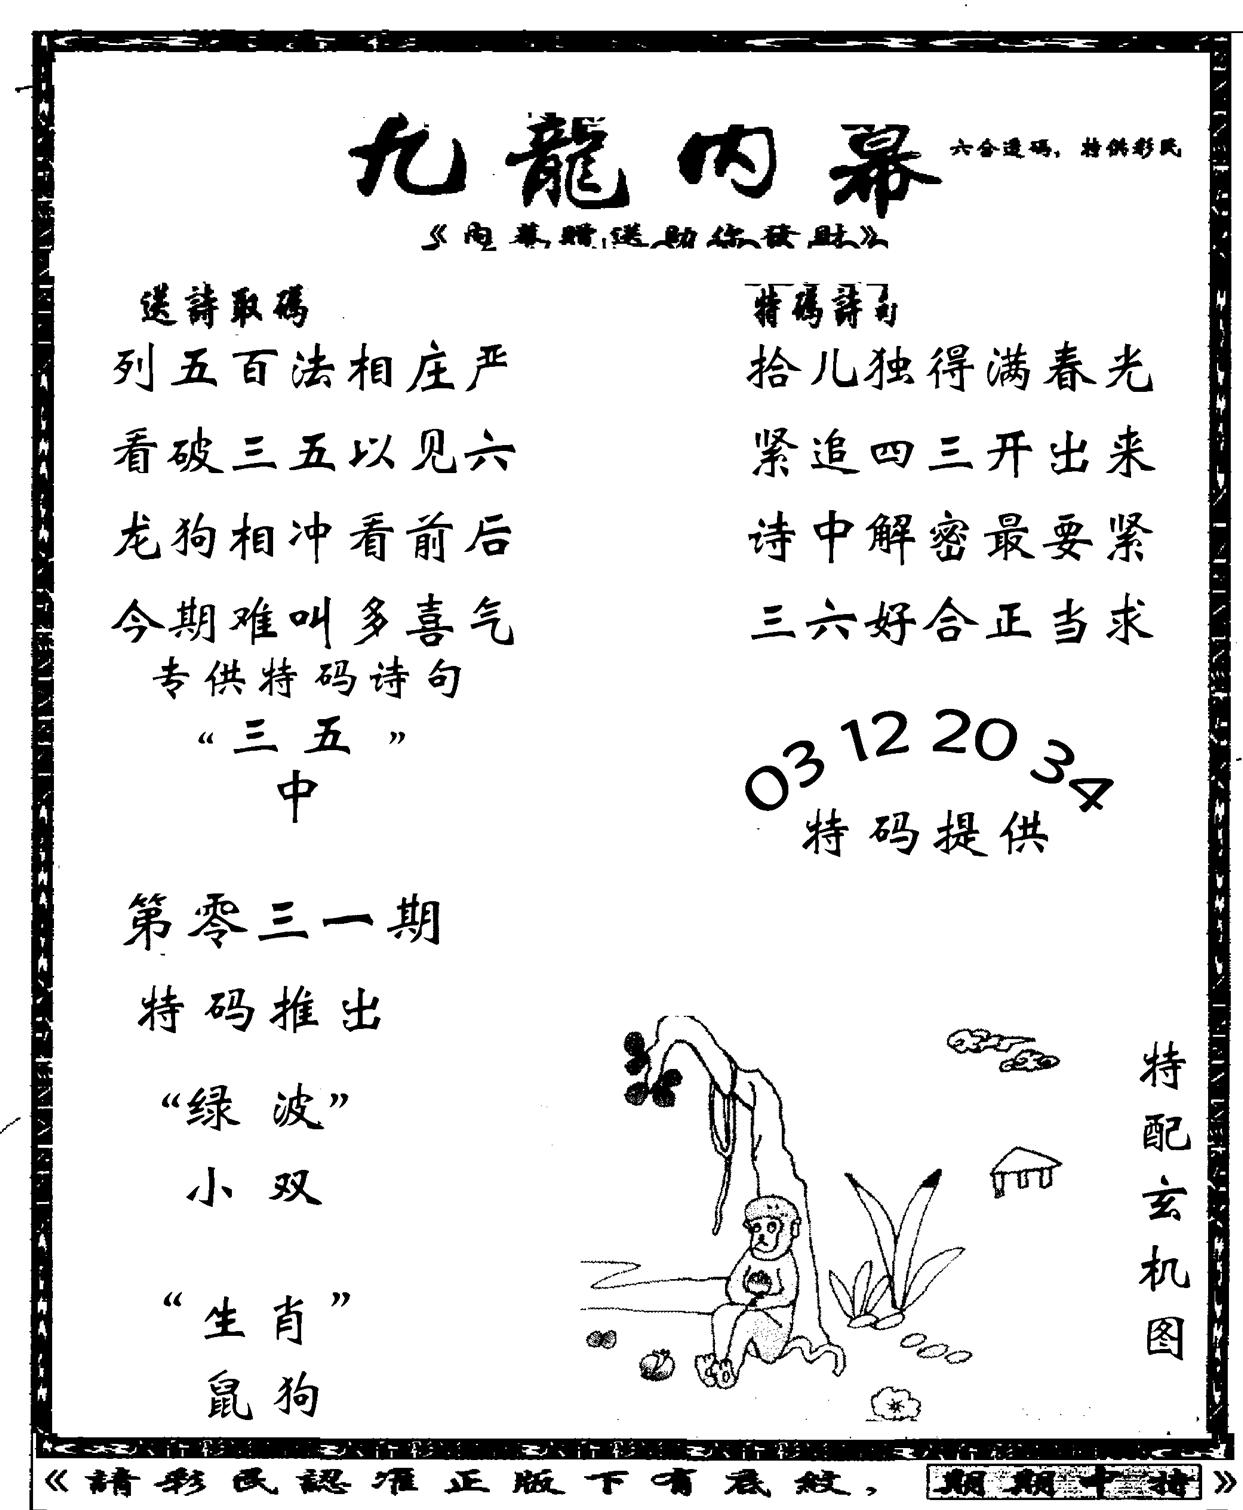 九龍内幕
六合透码，特供彩民
《内幕赠送助你發财》
送詩取碼
列五百法相庄严
看破三五以见六
龙狗相冲看前后
今期难叫多喜气
专供特码诗句
“三五”
中
特碼詩句
拾儿独得满春光
紧追四三开出来
诗中解密最要紧
三六好合正当求
03 12 20 34
特码提供
第零三一期
特码推出
“绿波”
小双
“生肖”
鼠狗
特配玄机图
《請彩民認准正版下有底紋，期期中特》